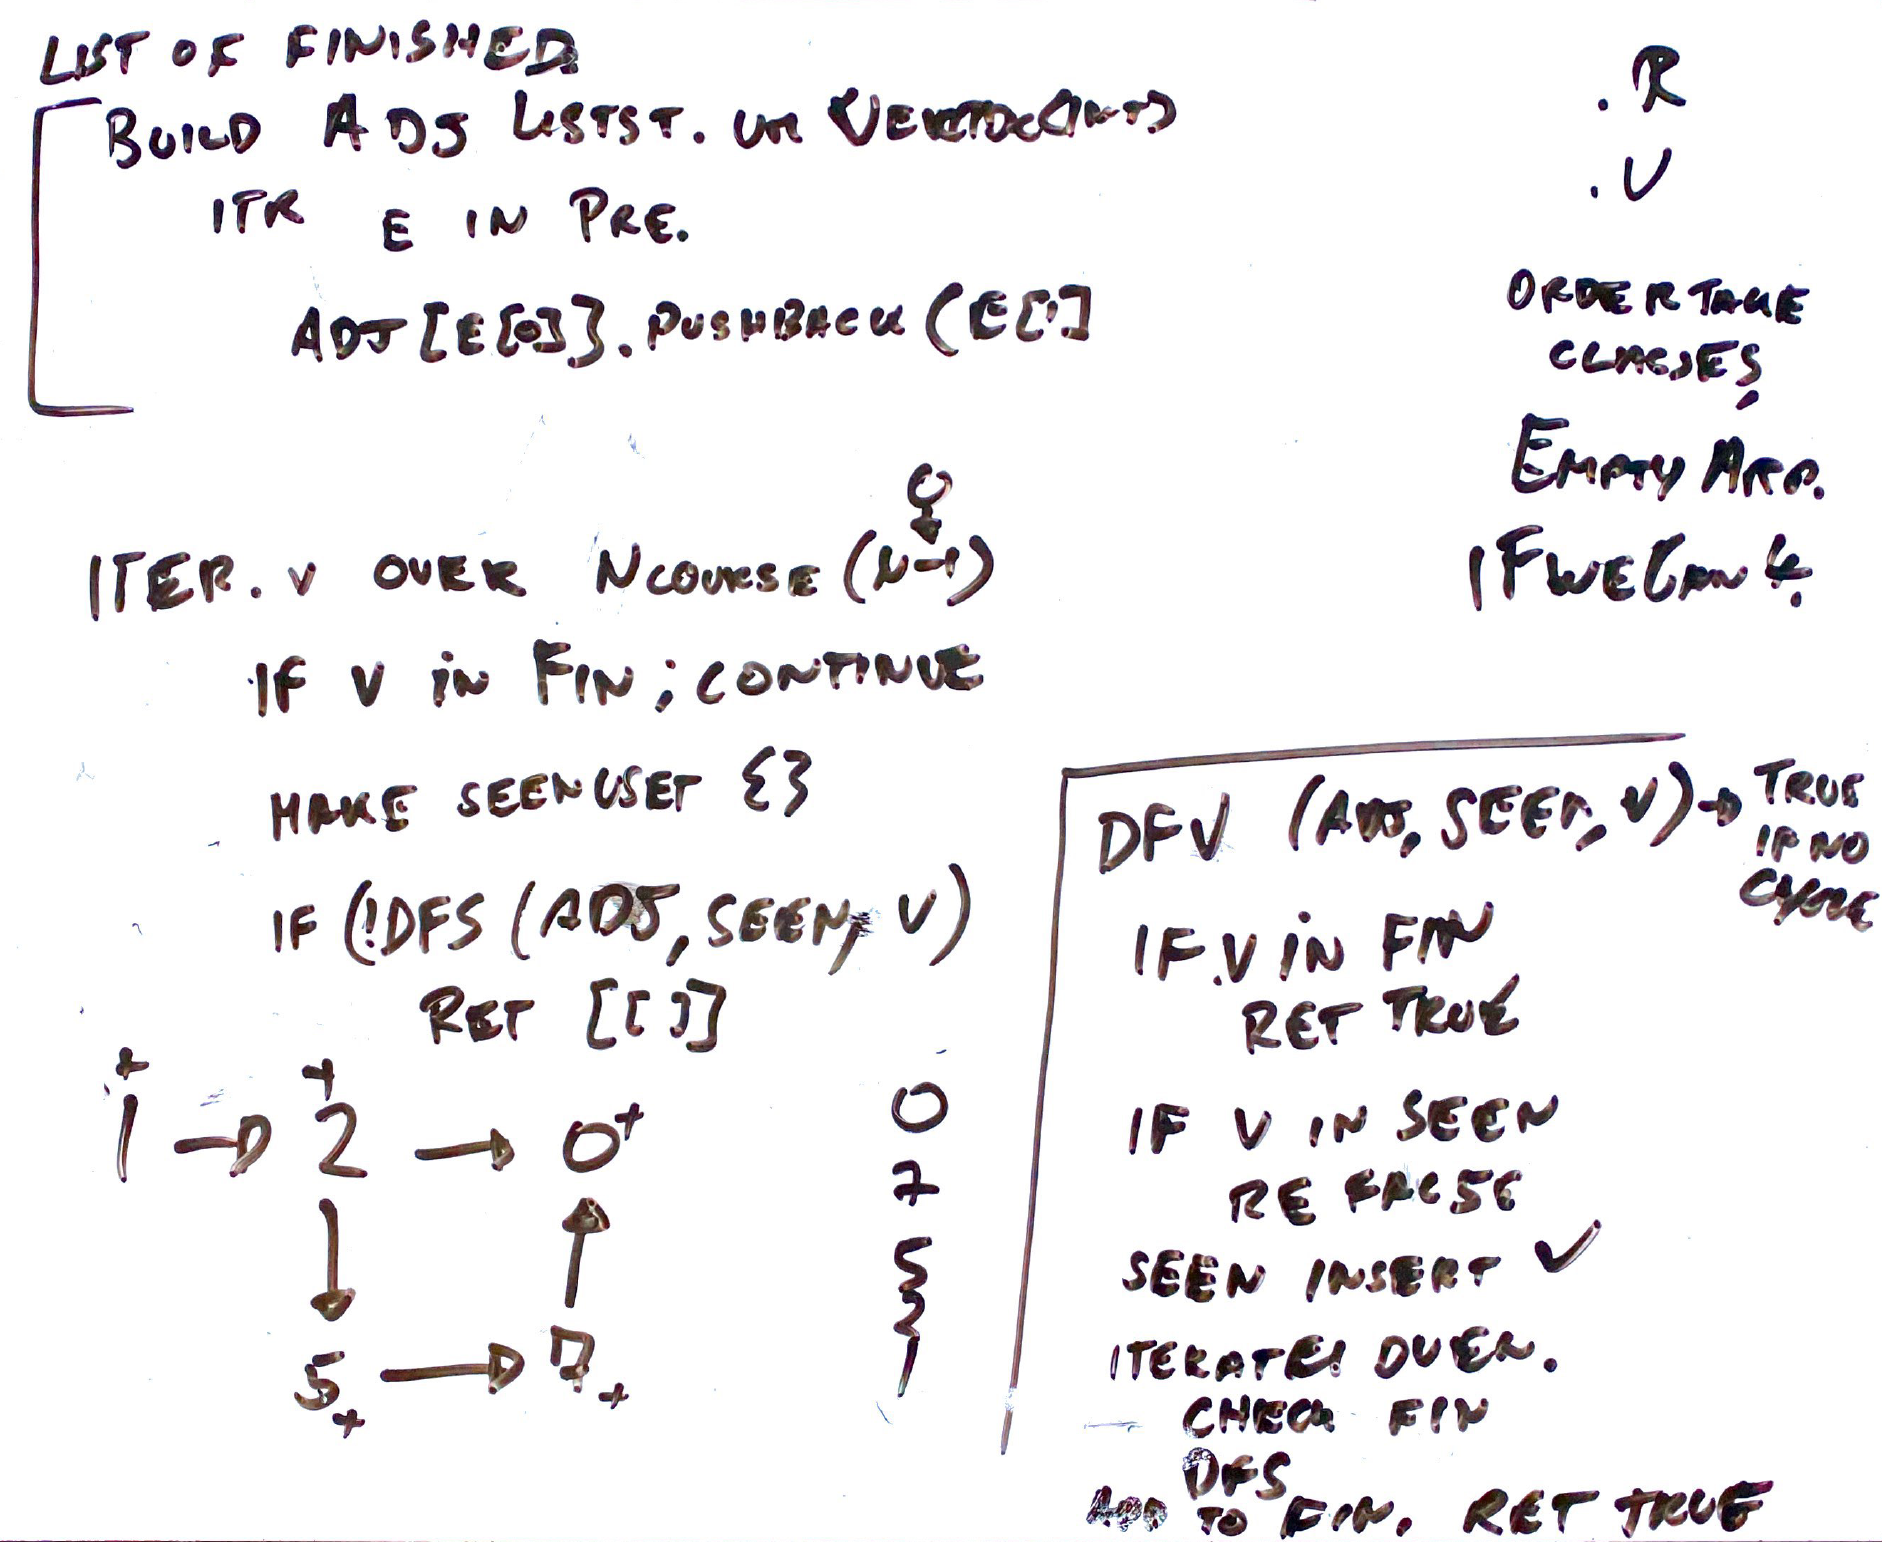 LIST OF FINISHED
BUILD ADJ LISTST. UM <VECTOR<INT>
ITR E IN PRE.
ADJ[E[0]}.PUSHBACK(E[1]
0
ITER. V OVER NCOURSE (N-1)
IF V IN FIN; CONTINUE
MAKE SEEN USET {}
IF (!DFS (ADJ, SEEN, V)
RET [[]]
+ +
1 → 2 → 0+
5+ → 7+
0
7
5
2
1
. R
. V
ORDER TAKE
CLASSES
EMPTY ARR.
IF WE CAN'T.
DFV (ADJ, SEEN, V) → TRUE
IF NO
CYCLE
IF V IN FIN
RET TRUE
IF V IN SEEN
RE FALSE
SEEN INSERT ✓
ITERATE OVER.
CHECK FIN
DFS
ADD TO FIN. RET TRUE